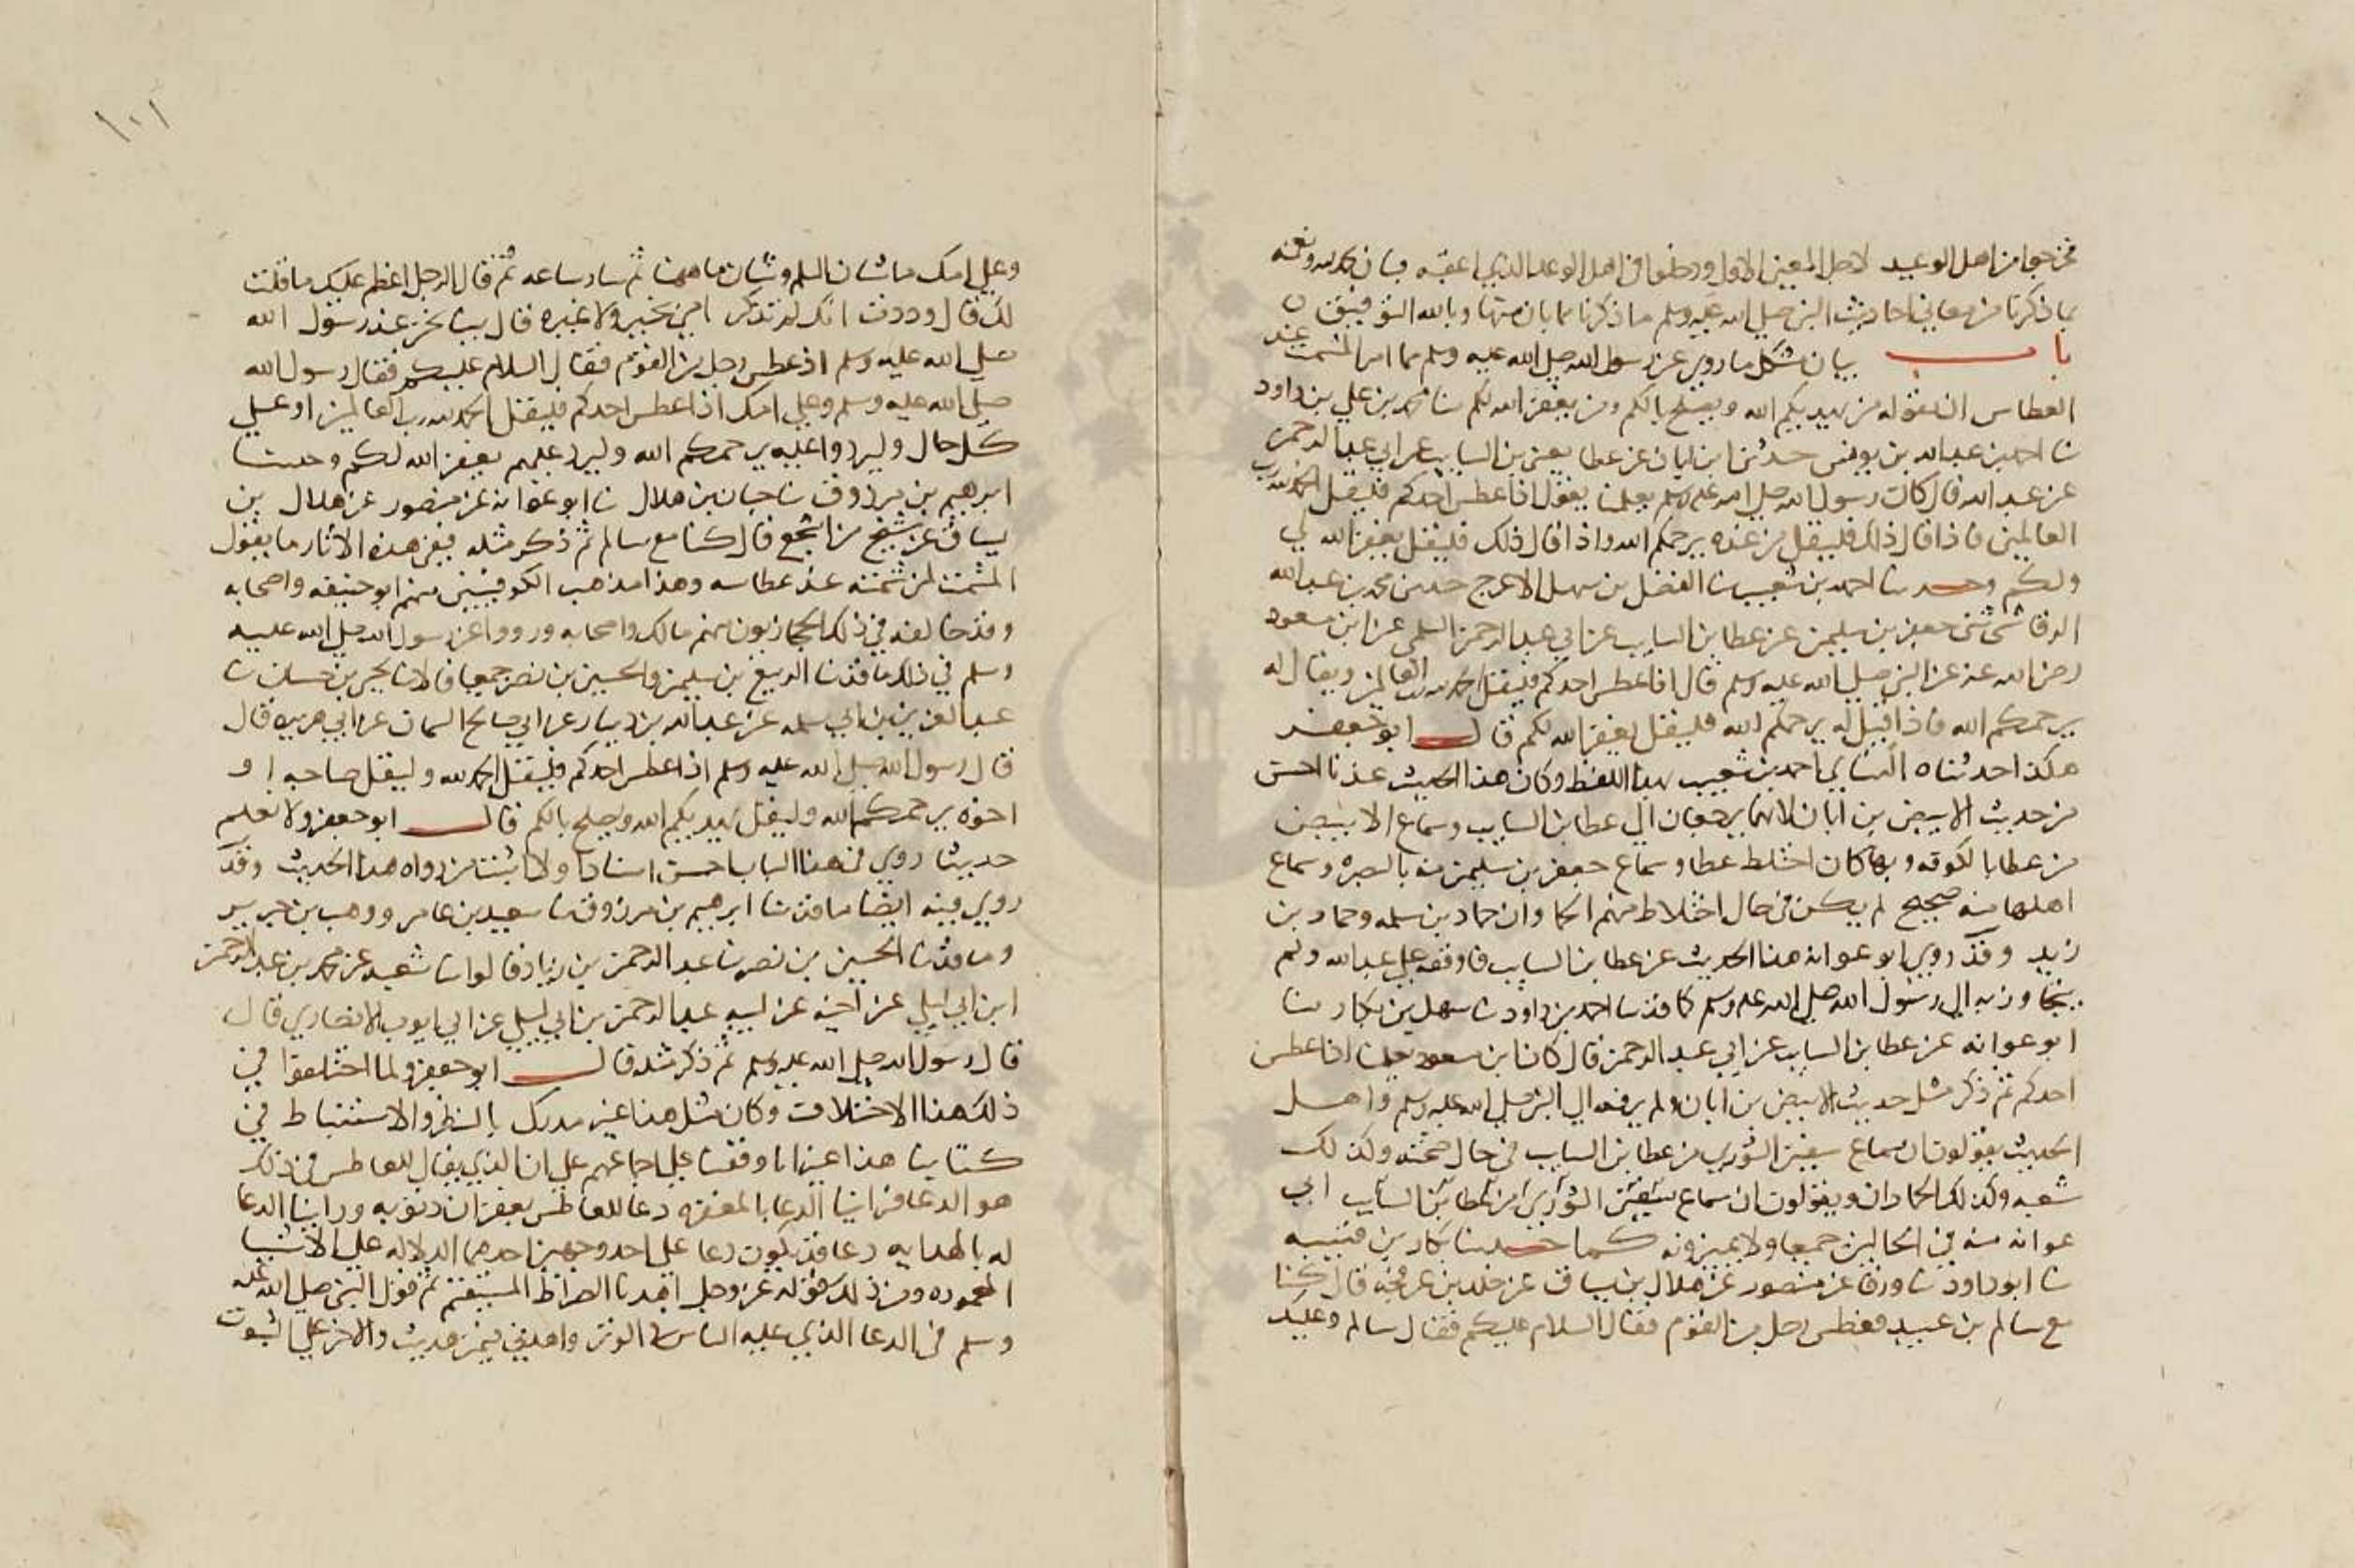 فخرجوا من اهل الوعيد لاهل المعنى الاول ودخلوا في اهل الوعد الذي اعقبه فبان بحمد الله ونعمته
بما ذكرنا من معاني احاديث النبي صلى الله عليه وسلم ما ذكرنا مما بان منها وبالله التوفيق
باب بيان مشكل ما روي عن رسول الله صلى الله عليه وسلم مما امر المشمت عند
العطاس ان يقوله من يهديكم الله ويصلح بالكم ومن يغفر الله لكم نا محمد بن علي بن داود
نا احمد بن عبد الله بن يونس حدثنا ابن ابان عن عطا يعني بن السايب عن ابي عبد الرحمن
عن عبد الله قال كان رسول الله صلى الله عليه وسلم يعلمنا يقول اذا عطس احدكم فليقل الحمد لله رب
العالمين فاذا قال ذلك فليقل من عنده يرحمكم الله واذا قال ذلك فليقل يغفر الله لي
ولكم وحدثنا احمد بن شعيب نا الفضل بن سهل الاعرج حدثني محمد بن عبد الله
الرقاشي ثنى جعفر بن سليمن عن عطا بن السايب عن ابي عبد الرحمن السلمي عن ابن مسعود
رضي الله عنه عن النبي صلى الله عليه وسلم قال اذا عطس احدكم فليقل الحمد لله رب العالمين ويقال له
يرحمكم الله فاذا قيل له يرحمكم الله فليقل يغفر الله لكم قال ابو جعفر
هكذا حدثناه النسائي احمد بن شعيب بهذا اللفظ وكان هذا الحديث عندنا احسن
من حديث الابيض بن ابان لانهما يرجعان الى عطا بن السايب وسماع الابيض
من عطا بالكوفه وبها كان اختلط عطا وسماع جعفر بن سليمن منه بالبصره وسماع
اهلها منه صحيح لم يكن في حال اختلاط منهم الحمادان حماد بن سلمه وحماد بن
زيد وقد روى ابو عوانه هذا الحديث عن عطا بن السايب فاوقفه على عبد الله ولم
يتجاوز به الى رسول الله صلى الله عليه وسلم كما قد نا احمد بن داود نا سهل بن بكار نا
ابو عوانه عن عطا بن السايب عن ابي عبد الرحمن قال كان ابن مسعود يعلمنا اذا عطس
احدكم ثم ذكر مثل حديث الابيض بن ابان ولم يرفعه الى النبي صلى الله عليه وسلم واهل
الحديث يقولون ان سماع سفين الثوري من عطا بن السايب في حال صحته وكذلك
شعبه وكذلك الحمادان ويقولون ان سماع سفين الثوري من عطا بن السايب ابي
عوانه منه في الحالين جميعا ولا يميزونه كما حدثنا بكار بن قتيبه
نا ابو داود نا ورقا عن منصور عن هلال بن يساف عن خالد بن عرفجه قال كنا
مع سالم بن عبيد فعطس رجل من القوم فقال السلام عليكم فقال سالم وعليك
وعلى امك ما شان السلم وشان ما ههنا ثم سار ساعه ثم قال للرجل اعظم عليك ما قلت
لك قال وددت انك لم تذكر امي بخير ولا غيره قال بينا نحن عند رسول الله
صلى الله عليه وسلم اذ عطس رجل من القوم فقال السلام عليكم فقال رسول الله
صلى الله عليه وسلم وعلى امك اذا عطس احدكم فليقل الحمد لله رب العالمين او على
كل حال وليردوا عليه يرحمكم الله وليرد عليهم يغفر الله لكم وحدثنا
ابرهيم بن مرزوق نا حبان بن هلال نا ابو عوانه عن منصور عن هلال بن
يساف عن شيخ من اشجع قال كنا مع سالم ثم ذكر مثله ففي هذه الاثار ما يقول
المشمت لمن شمته عند عطاسه وهذا مذهب الكوفيين منهم ابو حنيفه واصحابه
وقد خالفه في ذلك الحجازيون منهم مالك واصحابه ورووا عن رسول الله صلى الله عليه
وسلم في ذلك ما قد نا الربيع بن سليمن والحسين بن نصر جميعا قالا نا يحيى بن حسان نا
عبد العزيز بن ابي سلمه عن عبد الله بن دينار عن ابي صالح السمان عن ابي هريره قال
قال رسول الله صلى الله عليه وسلم اذا عطس احدكم فليقل الحمد لله وليقل صاحبه او
اخوه يرحمكم الله وليقل يهديكم الله ويصلح بالكم قال ابو جعفر ولا نعلم
حديثا روي في هذا الباب احسن اسنادا ولا اثبت من رواه هذا الحديث وقد
روي فيه ايضا ما قد نا ابرهيم بن مرزوق نا سعيد بن عامر ووهب بن جرير
وما قد نا الحسين بن نصر نا عبد الرحمن بن زياد قالوا نا شعبه عن محمد بن عبد الرحمن
ابن ابي ليلى عن اخيه عن ابيه عبد الرحمن بن ابي ليلى عن ابي ايوب الانصاري قال
قال رسول الله صلى الله عليه وسلم ثم ذكر مثله قال ابو جعفر ولما اختلفوا في
ذلك هذا الاختلاف وكان مثل هذا غير مدرك بالنظر والاستنباط في
كتابنا هذا غير انا وقفنا على اجماعهم على ان الذي يقال للعاطس في ذلك
هو الدعا فراينا الدعا بالمغفره دعا للعاطس بغفران ذنوبه وراينا الدعا
له بالهدايه دعا قد يكون دعا على احد وجهين احدهما الدلاله على الاشيا
المحموده ومن ذلك قوله عز وجل اهدنا الصراط المستقيم ثم قول النبي صلى الله عليه
وسلم في الدعا الذي عليه الناس في الوتر واهدني فيمن هديت والاخر على الثبوت
١٠١